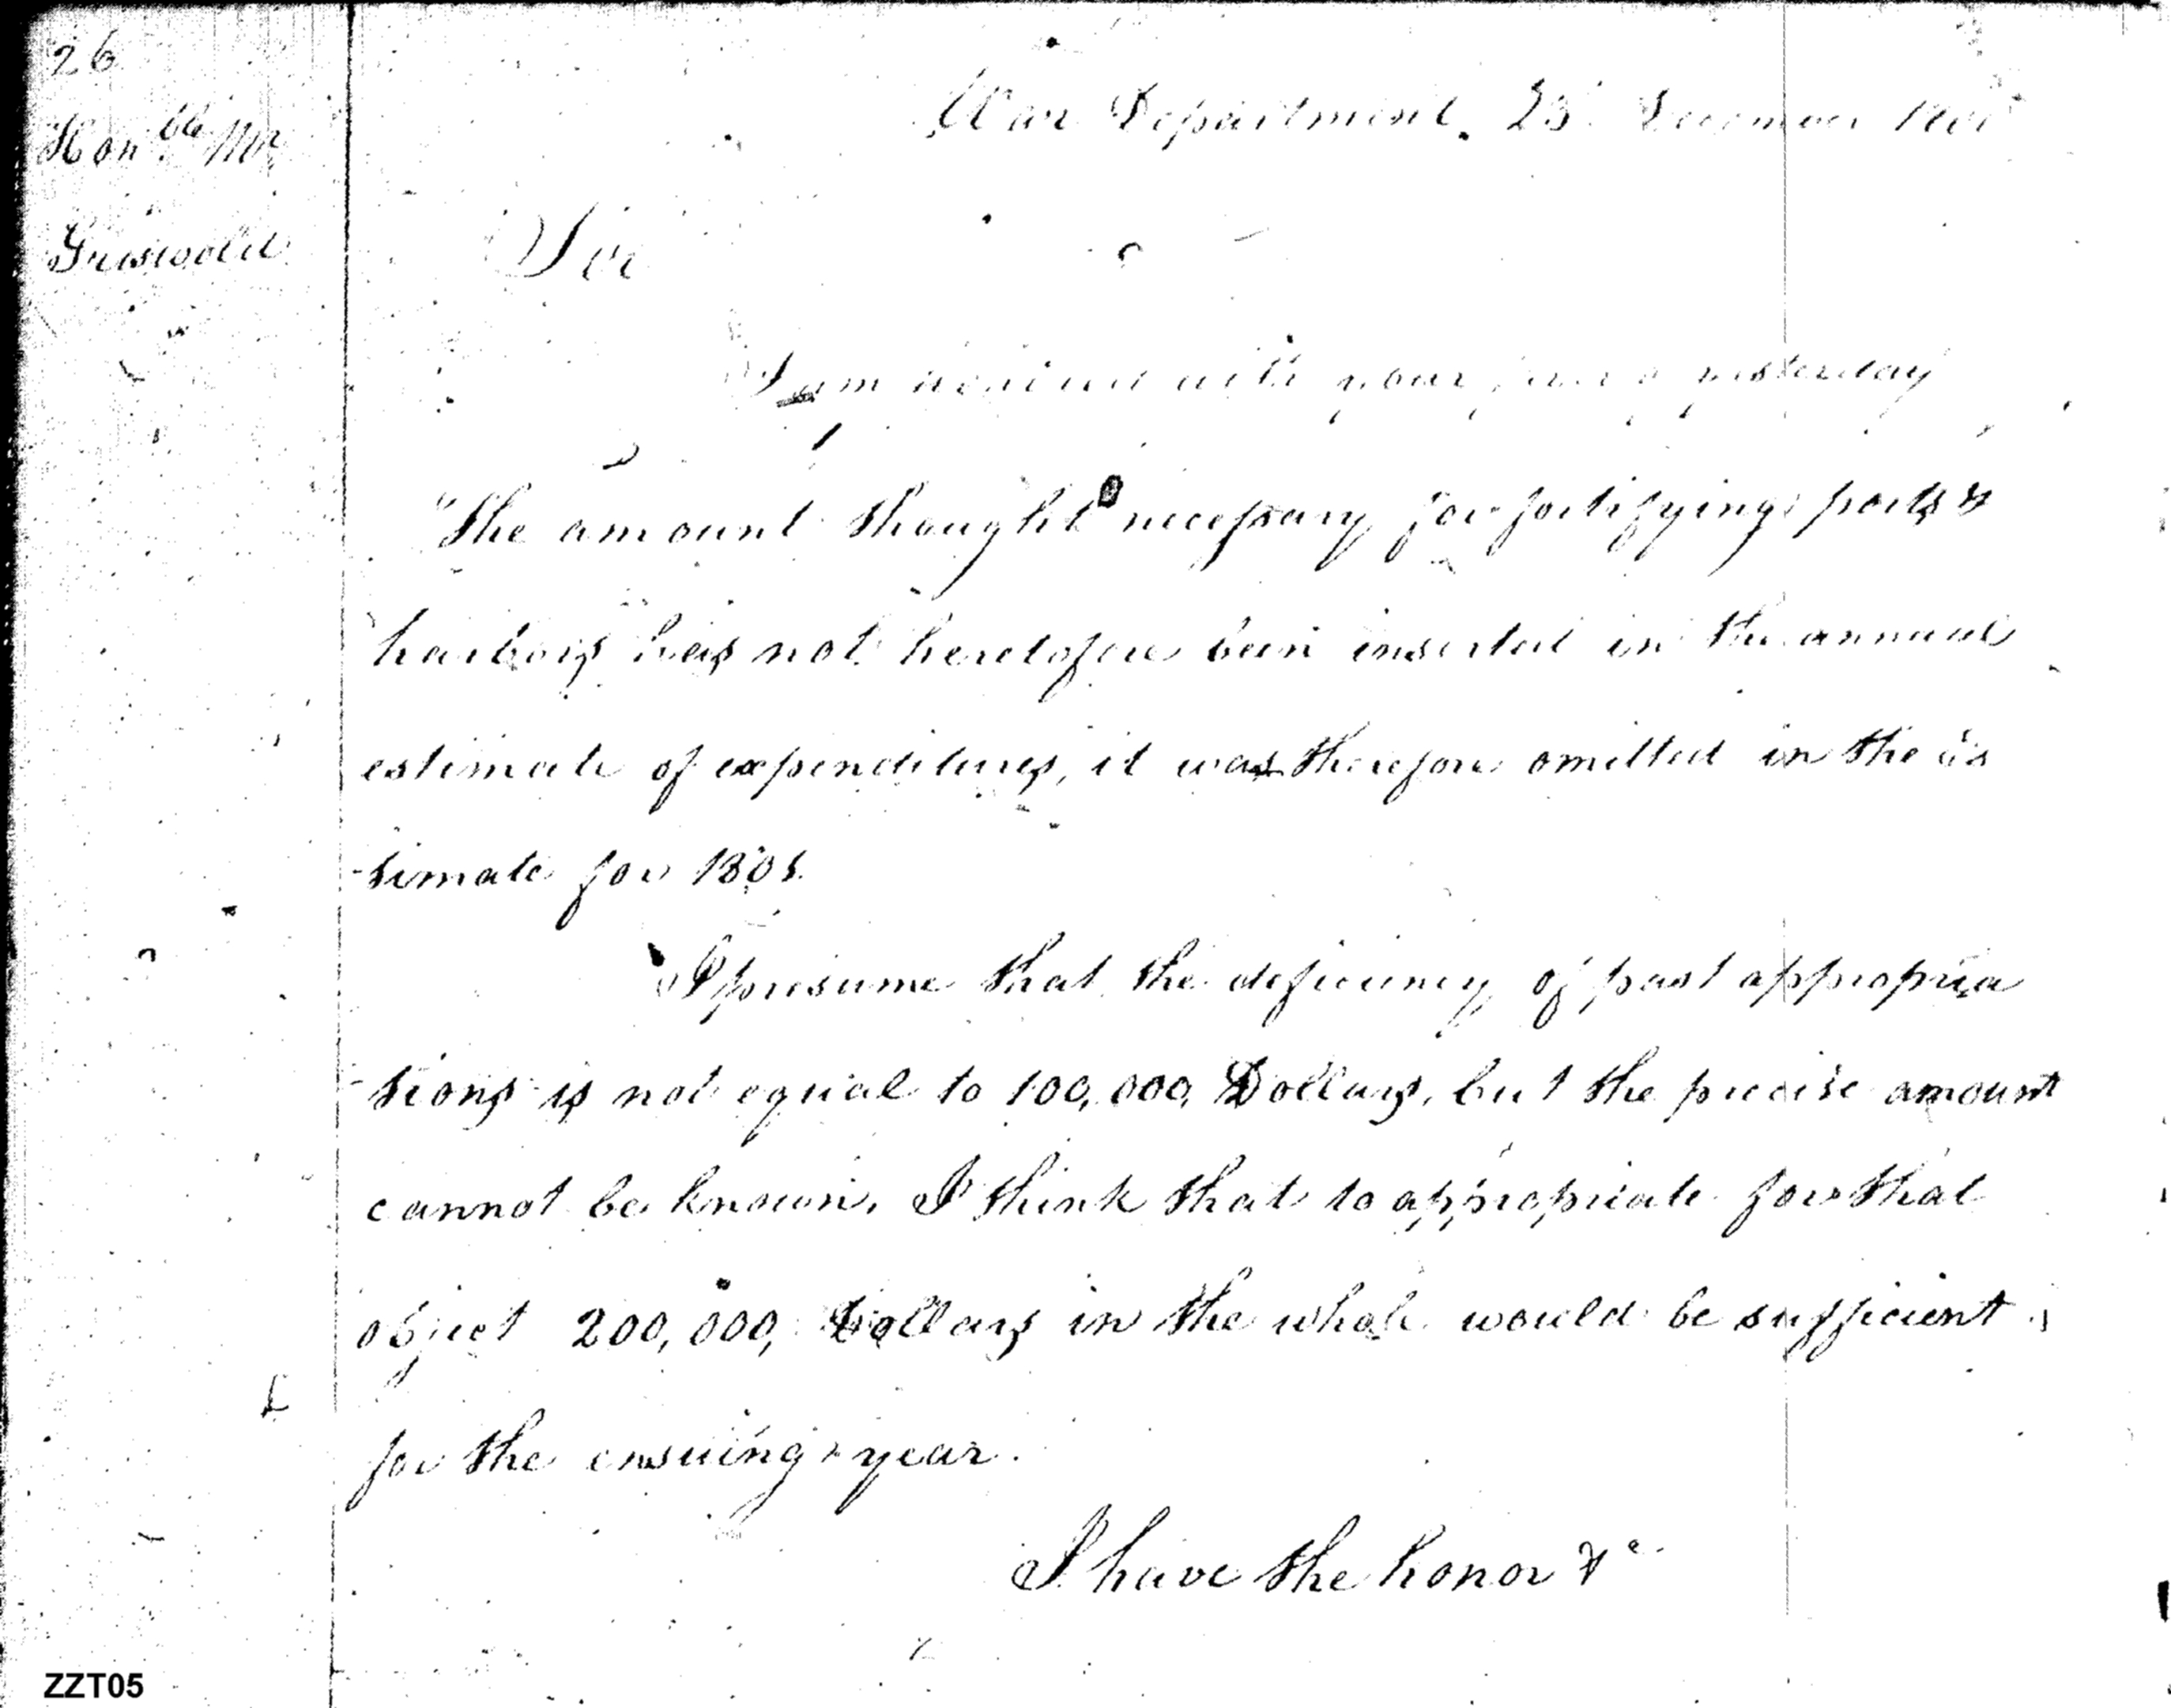 26
Hon.ble Mr
Griswold
War Department. 23 December
Sir
I am honored with your yesterday
The amount thought necessary for fortifying ports &
harbors has not heretofore been inserted in the annual
estimate of expenditures, it was therefore omitted in the es
-timate for 1801.
I presume that the deficiency of past appropria
-tions is not equal to 100,000, Dollars, but the precise amount
cannot be known, I think that to appropriate for that
object 200,000, Dollars in the whole would be sufficient
for the ensuing year.
I have the honor &c
ZZT05